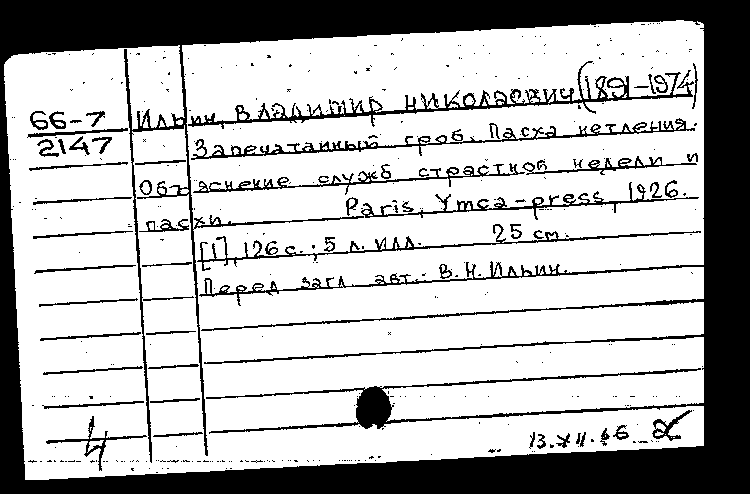 66-7
2147
Ильин, Владимир Николаевич. (1891-1974)
Запечатанный гроб. Пасха нетления.
Объяснение служб страстной недели и
пасхи. Paris, Ymca-press, 1926.
[1], 126 с.; 5 л. илл. 25 см.
Перед загл. авт.: В.Н. Ильин.
4
13.XII.66